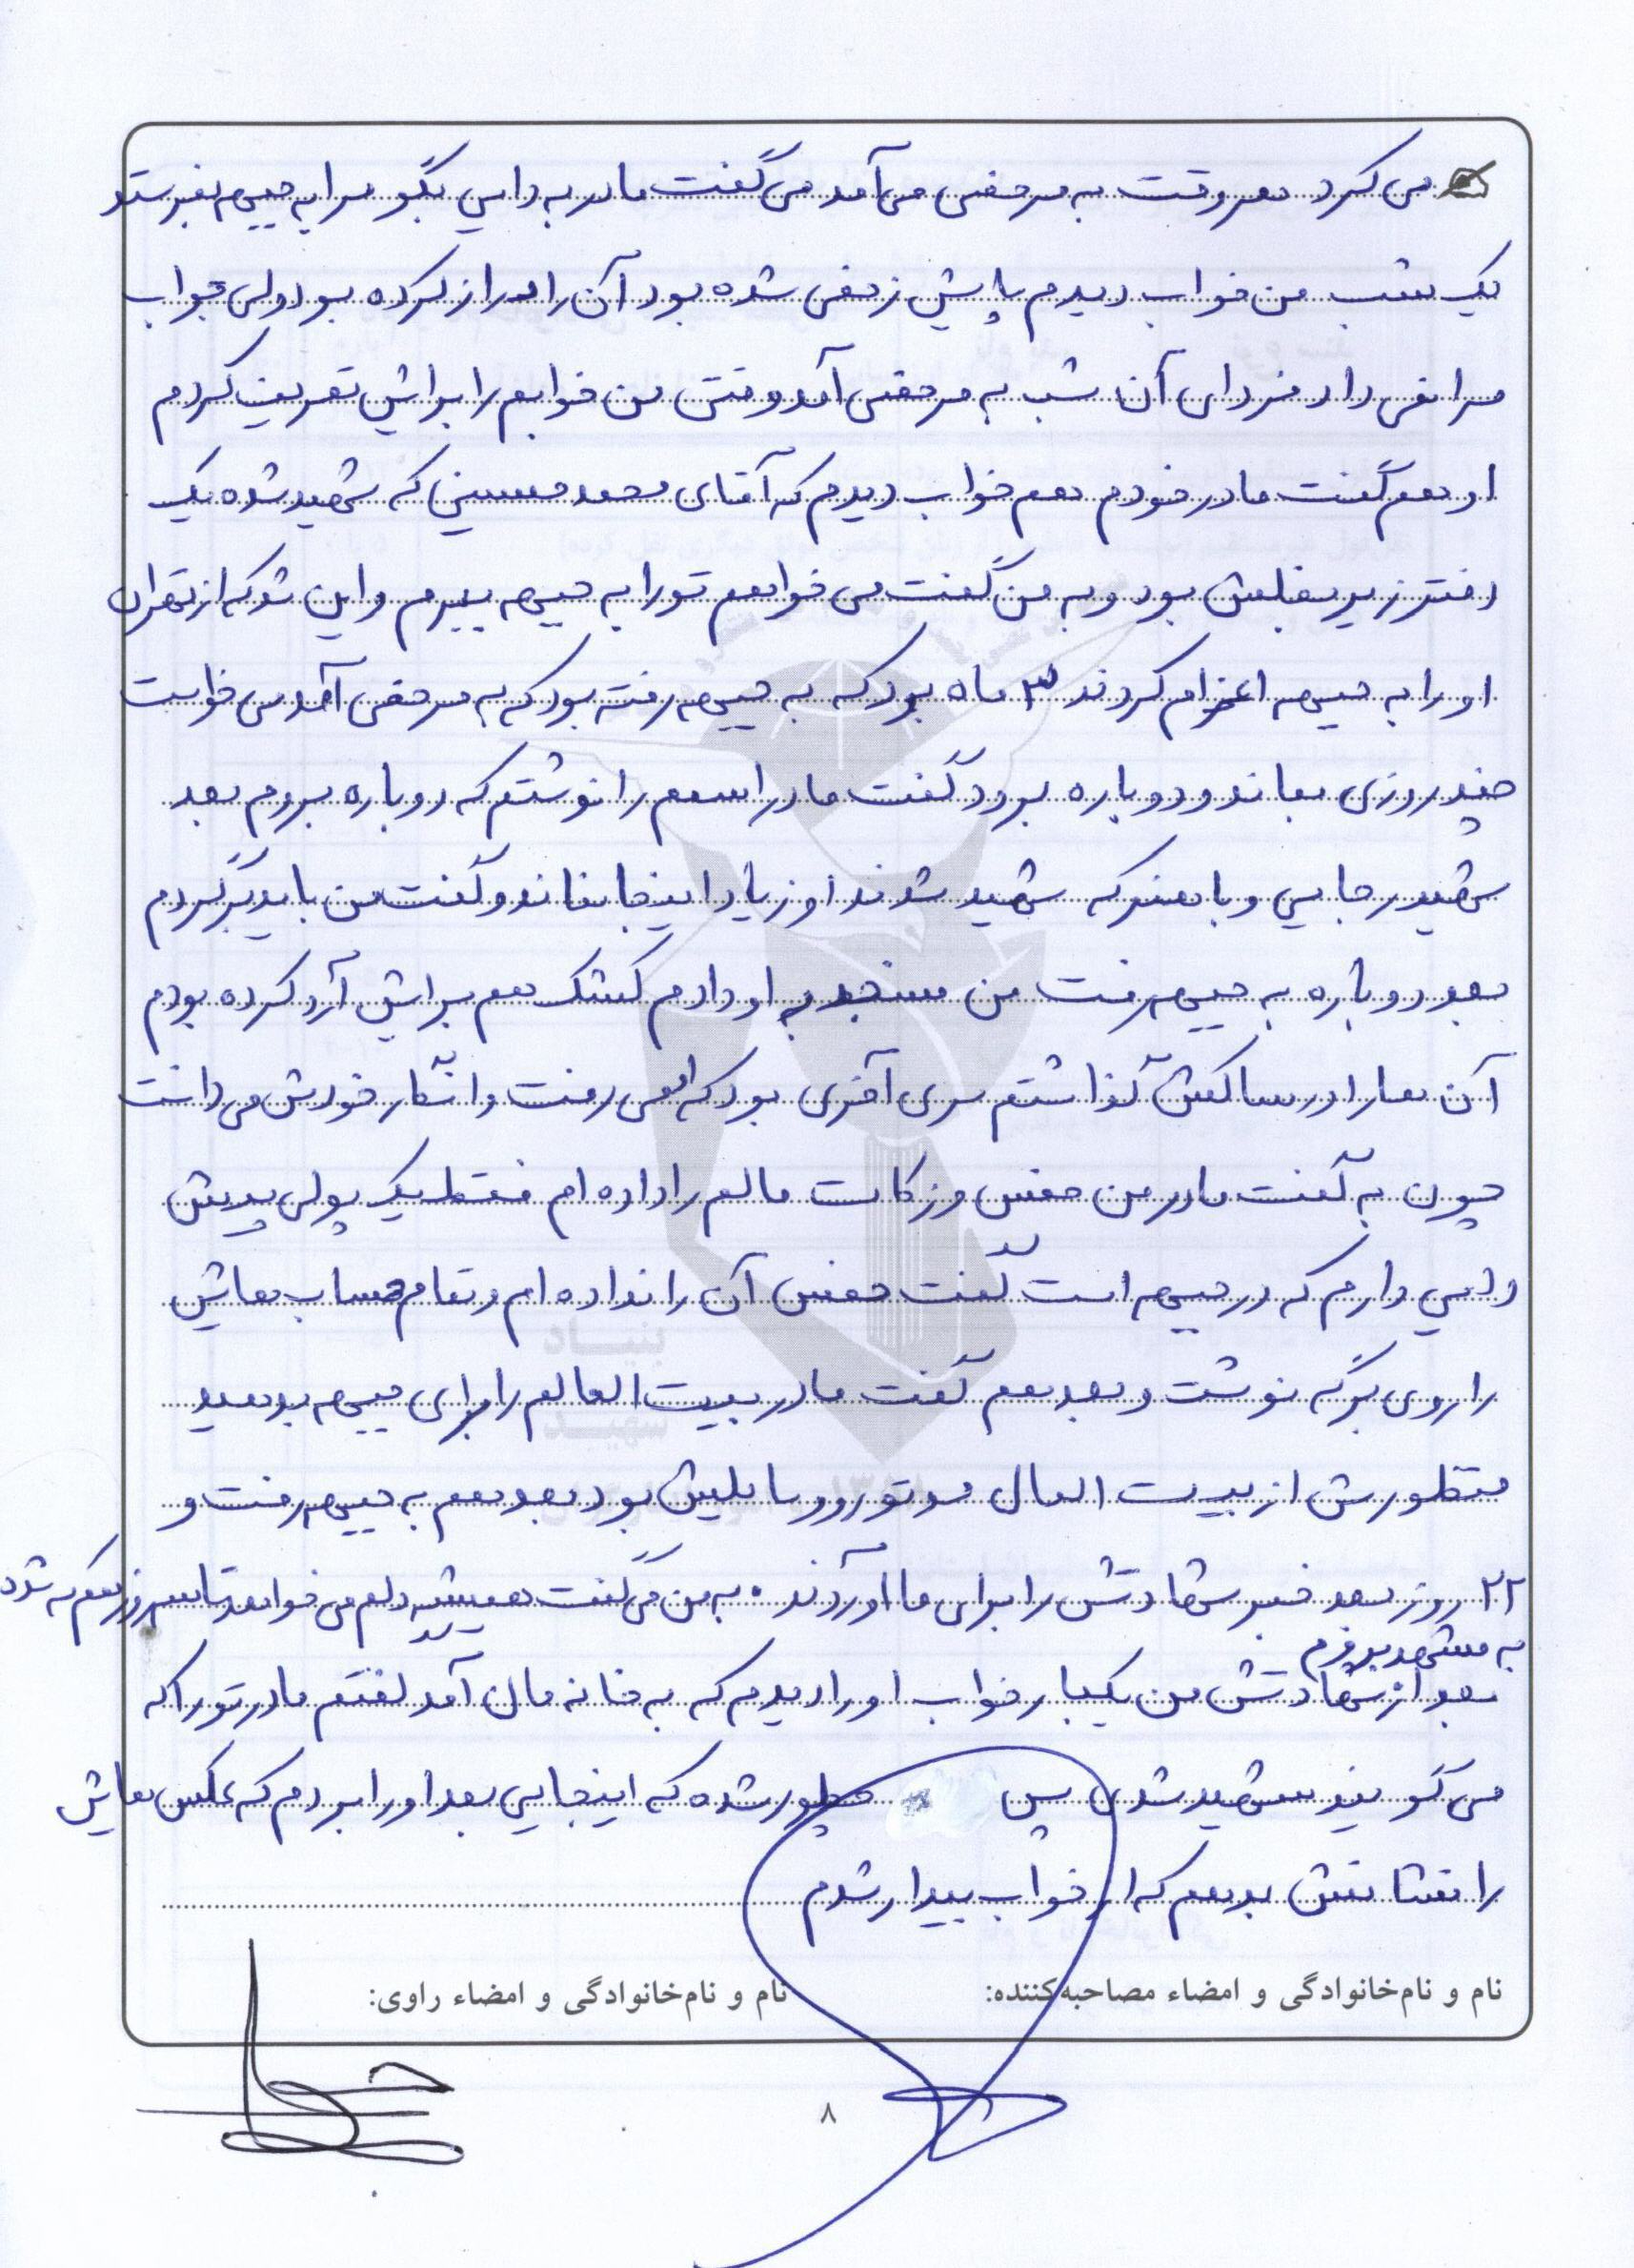 می کرد هر وقت به مرخصی می آمد می گفت مادر به دایی بگو مرا به جبهه بفرستد
یک شب من خواب دیدم پایش زخمی شده بود آن را دراز کرده بود ولی جواب
مرا نمی داد فردای آن شب به مرخصی آمد وقتی من خوابم را برایش تعریف کردم
او هم گفت مادر خودم هم خواب دیدم که آقای محمد حسینی که شهید شده یک
دفتر زیر بغلش بود و به من گفت می خواهم تو را به جبهه ببرم و این شد که از تهران
او را به جبهه اعزام کردند ۳ ماه بود که به جبهه رفته بود که به مرخصی آمد می خواست
چند روزی بماند و دوباره برود گفت مادر اسمم را نوشتم که دوباره بروم بعد
شهید رجایی و باهنر که شهید شدند او زیاد اینجا نماند و گفت من باید برگردم
بعد دوباره به جبهه رفت من به او دادم کشک هم برایش آرد کرده بودم
آن ها را در ساکش گذاشتم سری آخری بود که می رفت و انگار خودش می دانست
چون به گفت مادر من خمس و زکات مالم را داده ام فقط یک پولی پیش
دایی دارم که در جبهه است گفت خمس آن را نداده ام و تمام حساب هایش
را روی برگه نوشت و بعد هم گفت مادر بیت المالم را برای جبهه بدهید
منظورش از بیت المال موتور و سایلش بود بعد هم به جبهه رفت و
۲۲ روز بعد خبر شهادتش را برای ما آوردند. به من می گفت همیشه دلم می خواهد تا سر روز هم که شده
به مشهد بروم
بعد از شهادتش من یکبار خواب او را دیدم که به خانه مان آمد گفتم مادر تو را که
می گویند شهید شدی پس چطور شده که اینجایی بعد او را بردم که عکس هایش
را نشانش بدهم که از خواب بیدار شدم
نام و نام‌خانوادگی و امضاء مصاحبه‌کننده: نام و نام‌خانوادگی و امضاء راوی:
۸